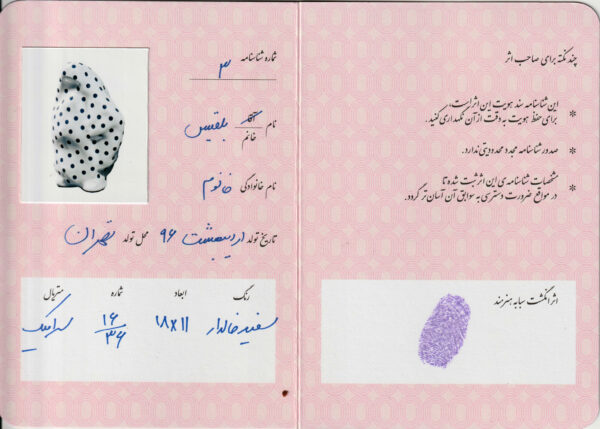 چند نکته برای صاحب اثر
این شناسنامه سند هویت این اثر است،
برای حفظ هویت به دقت از آن نگهداری کنید.
صدور شناسنامه مجدد محدودیتی ندارد.
مشخصات شناسنامه‌ی این اثر ثبت شده تا
در مواقع ضرورت دسترسی به سوابق آن آسان‌تر گردد.
اثر انگشت سبابه هنرمند
شماره شناسنامه ۳
نام آقای خانم بلقیس
نام خانوادگی خانوم
تاریخ تولد اردیبهشت ۹۶ محل تولد تهران
رنگ ابعاد شماره متریال
سفید خالدار ۱۸x۱۱ ۱۶/۳۶ سرامیک